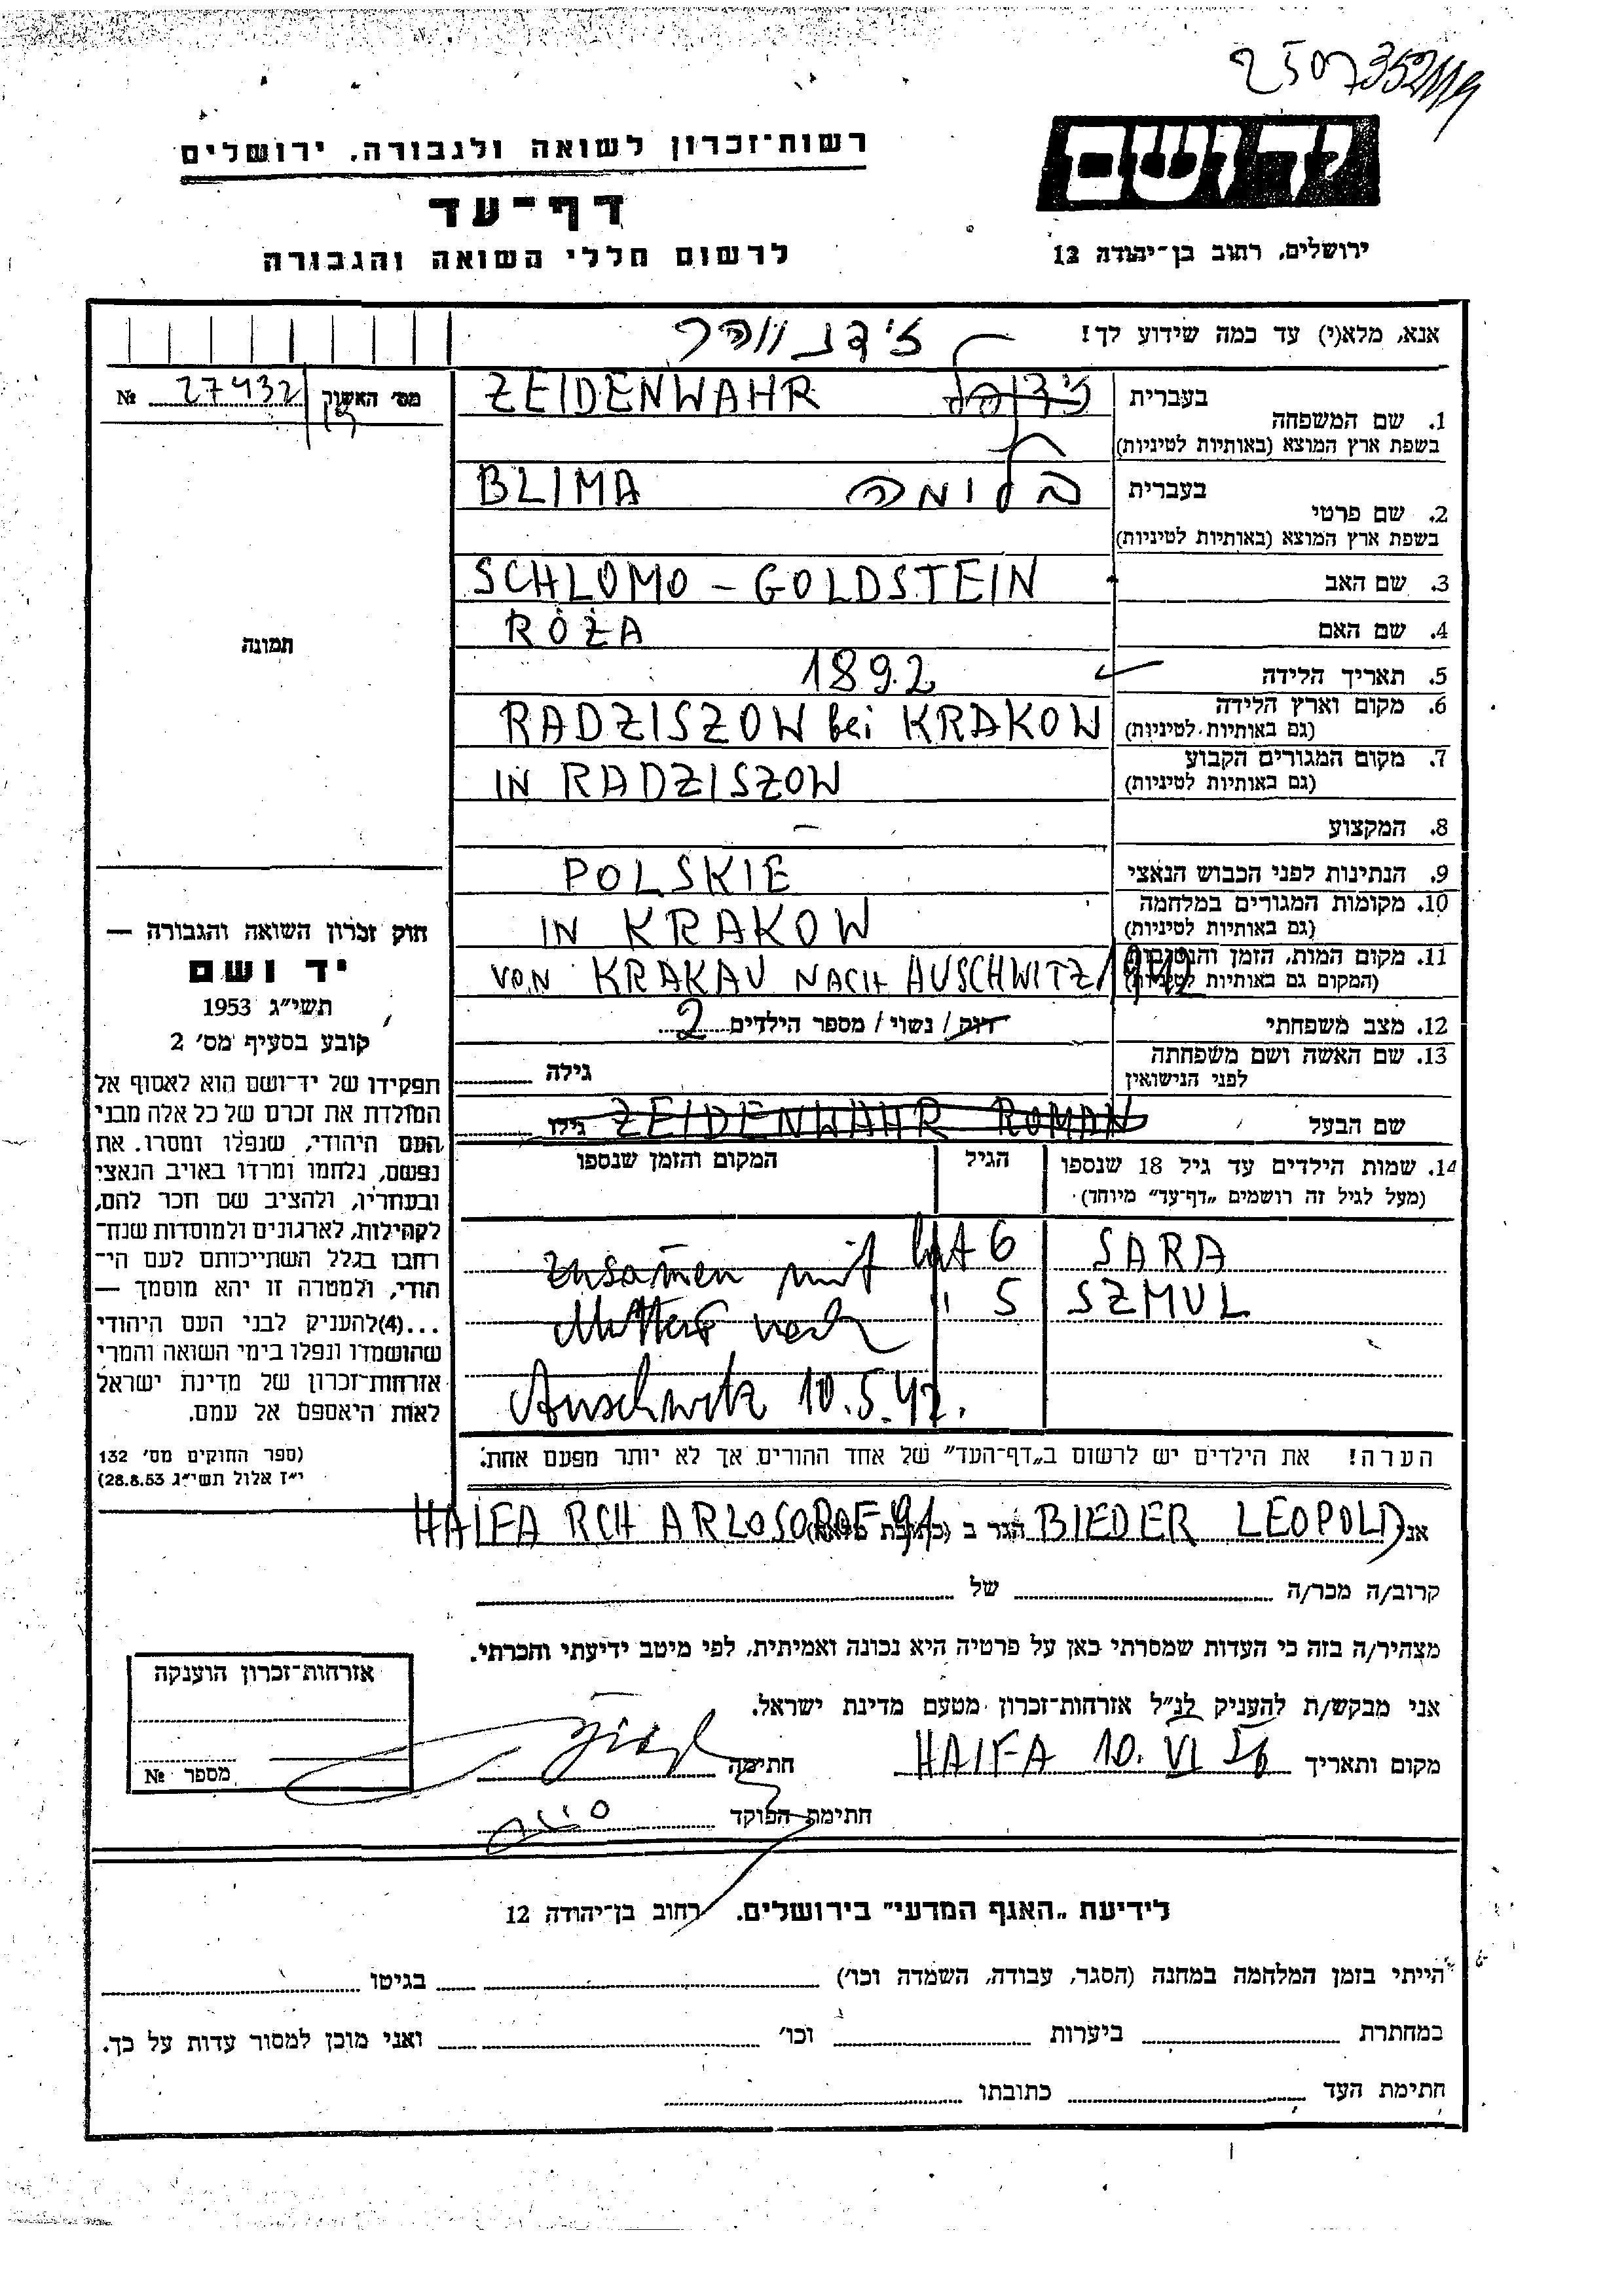 2507352 119
יד ושם
רשות־זכרון לשואה ולגבורה, ירושלים
דף־עד
לרשום חללי השואה והגבורה
ירושלים, רחוב בן־יהודה 12
אנא, מלא(י) עד כמה שידוע לך!
זידנווהר
מס' האשה № 27432
בעברית
1. שם המשפחה
בשפת ארץ המוצא (באותיות לטיניות)
ZEIDENWAHR
בעברית
2. שם פרטי
בשפת ארץ המוצא (באותיות לטיניות)
בלומה BLIMA
3. שם האב SCHLOMO – GOLDSTEIN
4. שם האם RÓŻA
5. תאריך הלידה 1892
6. מקום וארץ הלידה
(גם באותיות לטיניות)
RADZISZOW bei KRAKOW
7. מקום המגורים הקבוע
(גם באותיות לטיניות)
IN RADZISZOW
8. המקצוע –
9. הנתינות לפני הכבוש הנאצי POLSKIE
10. מקומות המגורים במלחמה
(גם באותיות לטיניות)
IN KRAKOW
11. מקום המות, הזמן והנסיבות
(המקום גם באותיות לטיניות)
VON KRAKAU NACH AUSCHWITZ/1942
12. מצב משפחתי רוק / נשוי / מספר הילדים 2
13. שם האשה ושם משפחתה
לפני הנישואין
גילה
שם הבעל ZEIDENWAHR ROMAN גילו
14. שמות הילדים עד גיל 18 שנספו
(מעל לגיל זה רושמים „דף־עד" מיוחד)
הגיל
המקום והזמן שנספו
SARA lat 6 zusamen mit
SZMUL " 5 Mutter nach
Auschwitz 10.5.42.
הערה! את הילדים יש לרשום ב„דף־העד" של אחד ההורים אך לא יותר מפעם אחת.
תמונה
חוק זכרון השואה והגבורה —
יד ושם
תשי"ג 1953
קובע בסעיף מס' 2
תפקידו של יד־ושם הוא לאסוף אל
המולדת את זכרם של כל אלה מבני
העם היהודי, שנפלו ומסרו את
נפשם, נלחמו ומרדו באויב הנאצי
ובעוזריו, ולהציב שם וזכר להם,
לקהילות, לארגונים ולמוסדות שנח־
רבו בגלל השתייכותם לעם הי־
הודי, ולמטרה זו יהא מוסמך —
...(4)להעניק לבני העם היהודי
שהושמדו ונפלו בימי השואה והמרי
אזרחות־זכרון של מדינת ישראל
לאות היאספם אל עמם.
(ספר החוקים מס' 132
י"ז אלול תשי"ג 28.8.53)
אני BIEDER LEOPOLD הגר ב (כתובת מלאה) HAIFA RCH ARLOSOROF 91
קרוב/ה מכר/ה של
מצהיר/ה בזה כי העדות שמסרתי כאן על פרטיה היא נכונה ואמיתית, לפי מיטב ידיעתי והכרתי.
אני מבקש/ת להעניק לנ"ל אזרחות־זכרון מטעם מדינת ישראל.
מקום ותאריך HAIFA 10. VI 56 חתימה
חתימת הפוקד
אזרחות־זכרון הוענקה
מספר №
לידיעת „האגף המדעי" בירושלים. רחוב בן־יהודה 12
הייתי בזמן המלחמה במחנה (הסגר, עבודה, השמדה וכו') בגיטו
במחתרת ביערות וכו' ואני מוכן למסור עדות על כך.
חתימת העד כתובתו